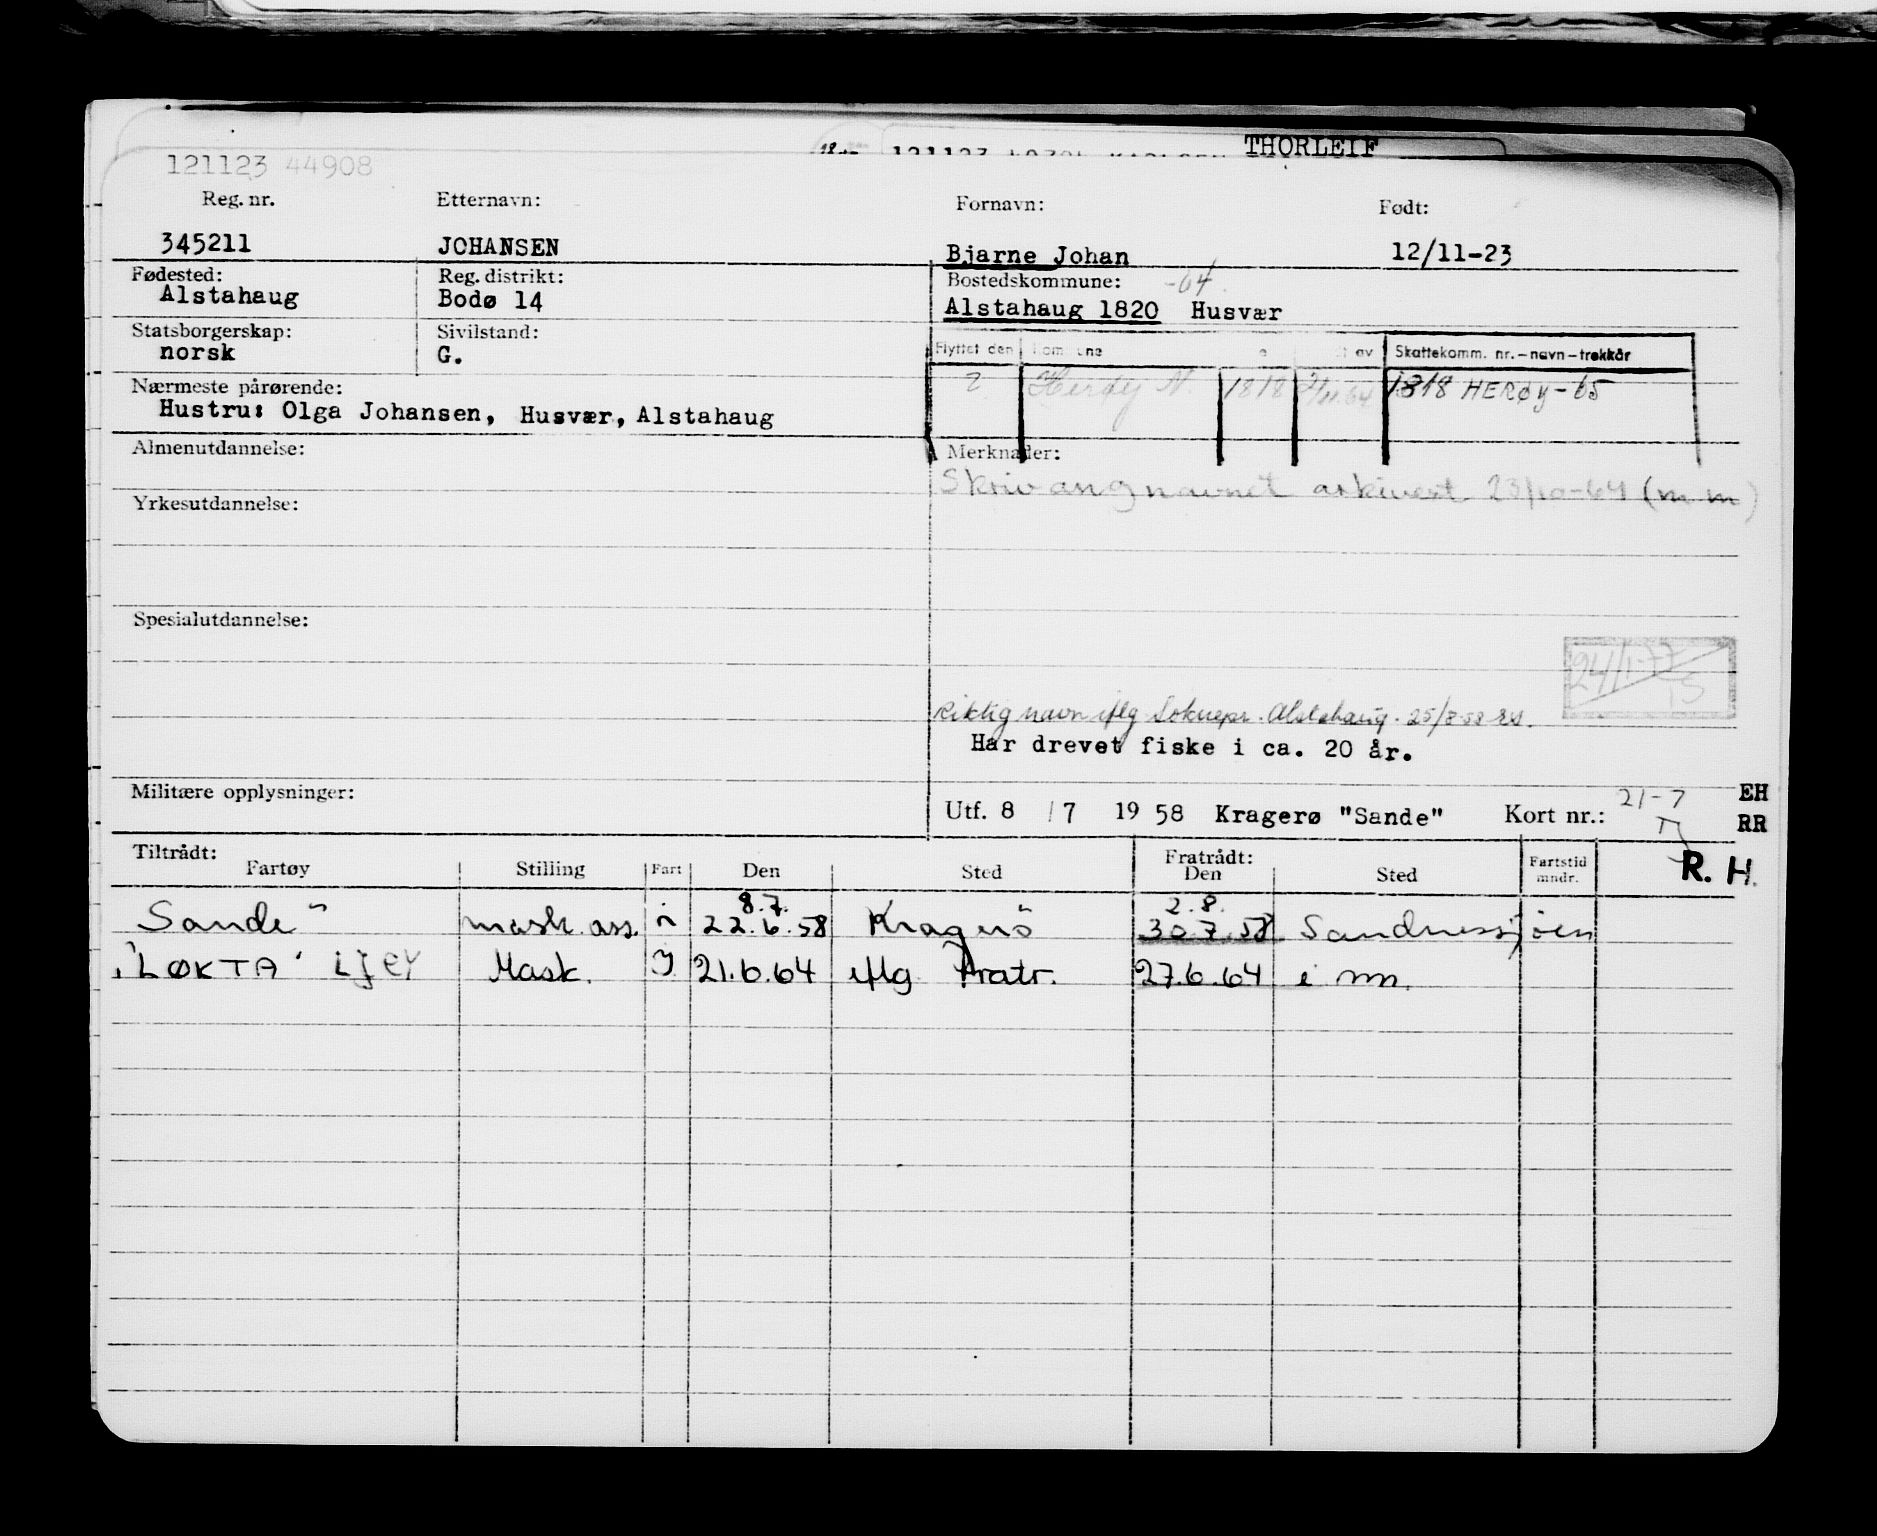 THORLEIF
121123 44908
Reg. nr. Etternavn: Fornavn: Født:
345211 JOHANSEN Bjarne Johan 12/11-23
Fødested: Reg. distrikt: Bostedskommune: -64
Alstahaug Bodø 14 Alstahaug 1820 Husvær
Statsborgerskap: Sivilstand:
norsk G.
Flyttet den av Skattekomm. nr.-navn-trekkår
Herøy N. 1818 1818 HERØY-65
Nærmeste pårørende:
Hustru: Olga Johansen, Husvær, Alstahaug
Almenutdannelse: Merknader:
Skriv ang navnet arkivert 23/10-64 (m m)
Yrkesutdannelse:
Spesialutdannelse:
24/1-77
TS
Riktig navn iflg Soknepr. Alstahaug. 25/8-58
Har drevet fiske i ca. 20 år.
Militære opplysninger: Utf. 8 / 7 19 58 Kragerø "Sande" Kort nr.: 21-7 EH
RR
R. H.
Tiltrådt: Fratrådt:
Fartøy Stilling Fart Den Sted Den Sted Fartstid mndr.
8.7. 2.8.
Sande" mask. ass. i 22.6.58 Kragerö 30.7.58 Sandnessjöen
"LØKTA" LJEY Mask. I 21.6.64 iflg fratr. 27.6.64 i mm.